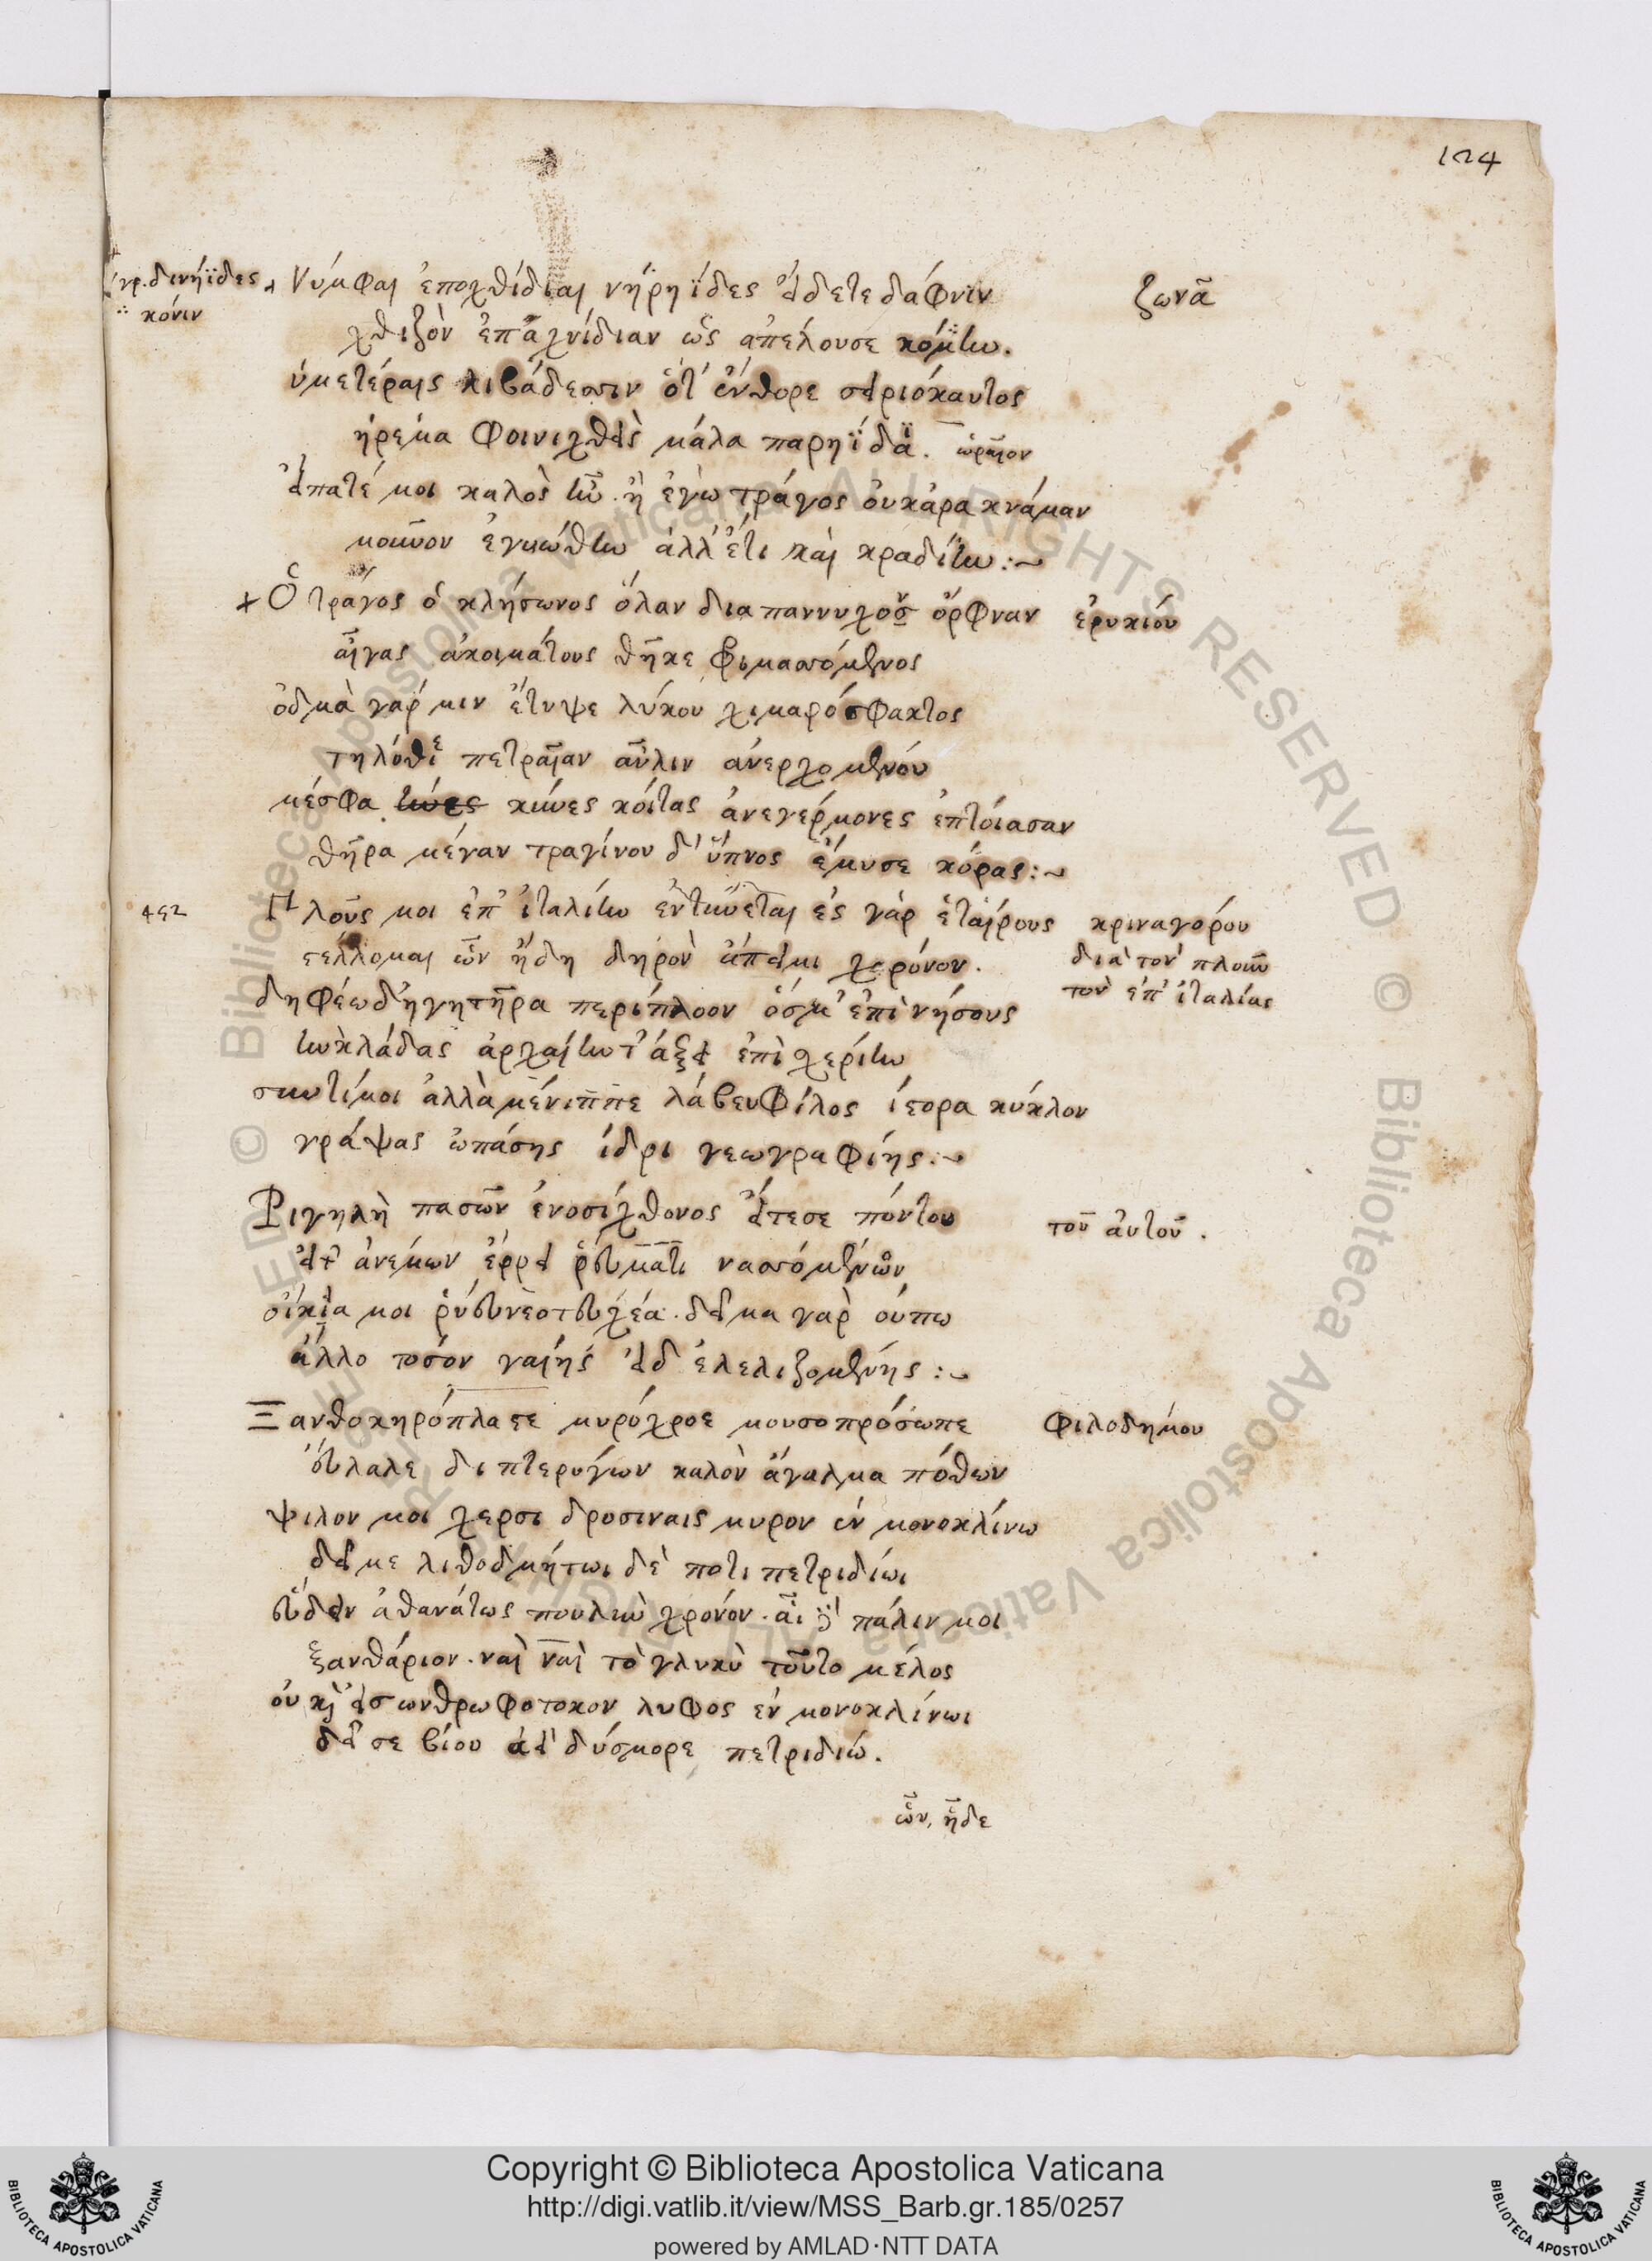 124
γρ. δινήϊδες
κόνιν
Νύμφαι ἐποχθίδιαι νηρηΐδες εἴδετε δάφνιν
ζωνᾶ
χθιζὸν ἐπἀχνίδιαν ὡς ἀπέλουσε κόμην.
ὑμετέραις λιβάδεσσιν ὅτ' ἔνθορε σειριόκαυτος
ἠρέμα φοινιχθεὶς μάλα παρηΐδα. ὡραῖον
εἴπατέ μοι καλὸς ἦν. ἢ ἐγὼ τράγος οὐκἄρα κνάμαν
μοῦνον ἐγυιώθην ἀλλ' ἔτι καὶ κραδίην :~
+ Ὁ τράγος ὁ κλήσωνος ὅλαν διαπαννυχον ὄρφναν
ἐρυκίου
αἶγας ἀκοιμάτους θῆκε φιμασσόμενος
ὀδμὰ γάρ μιν ἔτυψε λύκου χιμαρόσφακτος
τηλόθι πετραίαν αὖλιν ἀνερχομένου
μέσφα κύνες κοίτας ἀνεγέρμονες ἐπτοίασαν
θῆρα μέγαν τραγίνου δ' ὕπνος ἔμυσε κόρας :~
452
Πλοῦς μοι ἐπ' ἰταλίην ἐντύνεται ἐς γὰρ ἑταίρους
κριναγόρου
στέλλομαι ὧν ἤδη δηρὸν ἄπειμι χρόνον.
διὰ τὸν πλοῦν
τὸν ἐπ' ἰταλίας
διφέω δ' ἡγητῆρα περίπλοον ὅσμ' ἐπὶ νήσους
κυκλάδας ἀρχαίην τ' ἄξει ἐπὶ χερίην
συντίμοι ἀλλὰ μένιππε λάβευ φίλος ἵστορα κύκλον
γράψας ὠπάσης ἴδρι γεωγραφίης :~
Ῥιγηλὴ πασῶν ἐνοσίχθονος εἴτεσε πόντου
τοῦ αὐτοῦ.
εἴτ' ἀνέμων ἔρρει ῥεύματι νασσομένων
οἰκία μοι ῥύευ νεοτευχέα. δεῖμα γὰρ οὔπω
ἄλλο τοσόν γαίης εἶδ' ἐλελιζομένης :~
Ξανθοκηρόπλαστε μυρόχροε μουσοπρόσωπε
φιλοδήμου
εὔλαλε διπτερύγων καλὸν ἄγαλμα πόθων
ψιλον μοι χερσι δροσιναις μυρον ἐν μονοκλίνω
δεῖ με λιθοδμήτωι δὲ ποτι πετριδίωι
εὕδειν ἀθανάτως πουλὺν χρόνον. πάλιν μοι
ξανθάριον. ναὶ ναὶ τὸ γλυκὺ τοῦτο μέλος
οὐκ ἀείσ ωνθρωφοτοκον λυφος ἐν μονοκλίνωι
δεῖ σε βίου δύσμορε πετριδίω.
ὧν, ἦδε
Copyright © Biblioteca Apostolica Vaticana
http://digi.vatlib.it/view/MSS_Barb.gr.185/0257
powered by AMLAD·NTT DATA